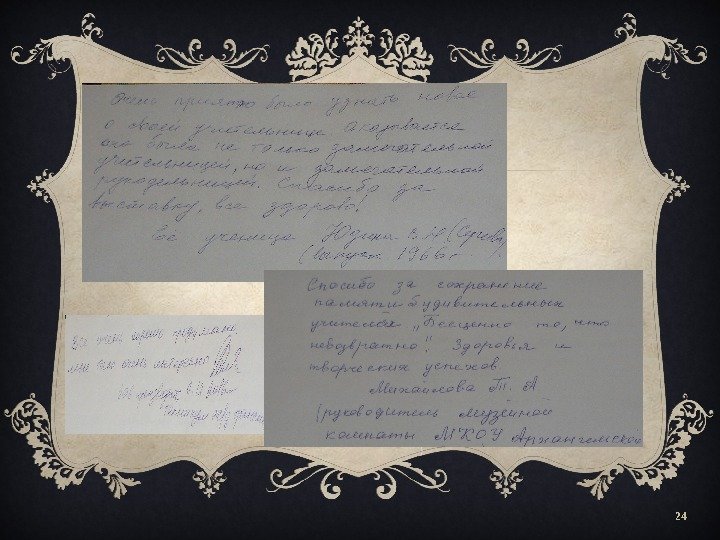 Очень приятно было узнать новое
о своей учительнице. Оказывается
она была не только замечательной
учительницей, но и замечательной
рукодельницей. Спасибо за
выставку, все здорово!
Её ученица Юдина В.И (Серова)
(Выпуск 1966 г.).
Спасибо за сохранение
памяти удивительных
учителей „Бесценно то, что
невозвратно". Здоровья и
творческих успехов.
Михайлова Т. А
(руководитель музейной
комнаты МКОУ Архангельской
Все очень
мне очень интересно
24